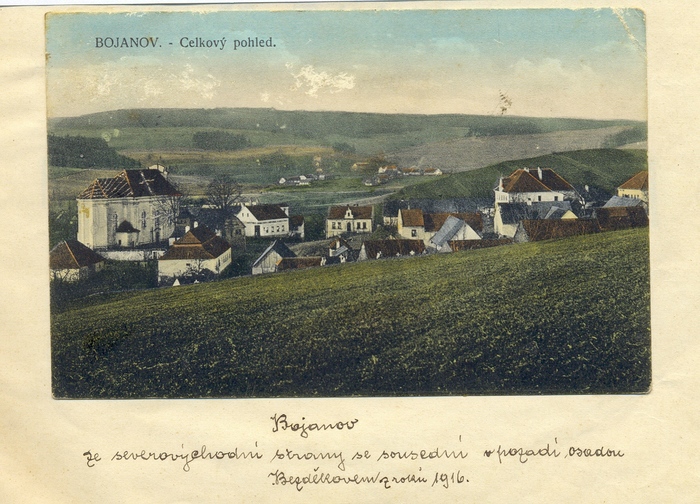 BOJANOV. - Celkový pohled.
Bojanov
ze severovýchodní strany se sousední v pozadí osadou
Bezděkovem z roků 1916.